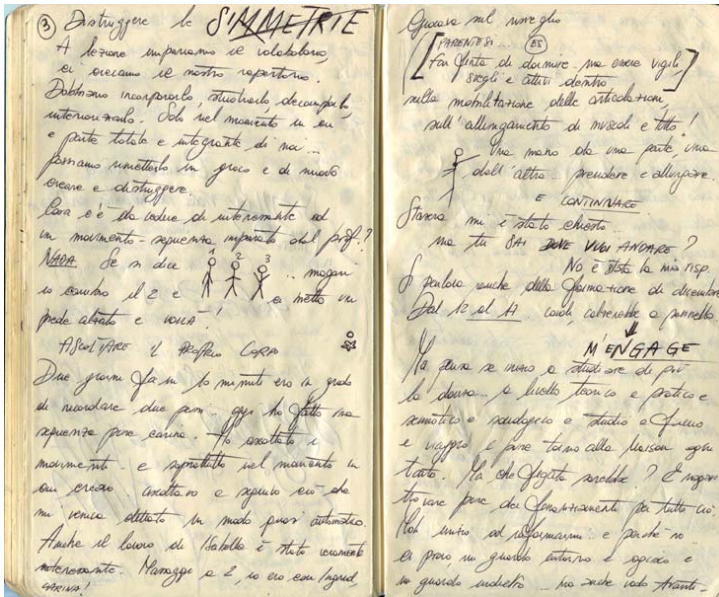 ③ Distruggere le SIMMETRIE
A lezione impariamo il vocabolario,
ci creiamo il nostro repertorio.
Dobbiamo incorporarlo, studiarlo, decomporlo,
interiorizzarlo. Solo nel momento in cui
è parte totale e integrante di noi...
possiamo rimetterlo in gioco e di nuovo
creare e distruggere.
Cosa c'è da vedere di interessante ad
un movimento-sequenza imparato dal prof.?
NADA. Se si dice 1 2 3 ... magari
io cambio il 2 e o metto un
piede alzato e voilà!
ASCOLTARE il PROPRIO CORPO
Due giorni fa in 10 minuti ero in grado
di ricordare due passi.. oggi ho fatto una
sequenza pure carina. Ho ascoltato i
movimenti.. e soprattutto nel momento in
cui creavo ascoltavo e seguivo ciò che
mi veniva dettato in modo quasi automatico.
Anche il lavoro di Isabella è stato veramente
interessante. Massaggio a 2, io ero con Ingrid,
CARINA!
Giocava sul risveglio
[PARENTESI... ES
Far finta di dormire ma essere vigili,
svegli e attivi dentro]
sulla mobilitazione delle articolazioni,
sull'allungamento di muscoli e tutto!
Una mano da una parte, una
dall'altra prendere e allungare.
E CONTINUARE
Stasera mi è stato chiesto...
ma tu SAI DOVE VUOI ANDARE?
No è stata la mia risp.
Si parlava anche della formazione di dicembre
Dal 12 al 17 cadrebbe a pennello
M'ENGAGE
Ma pensa se inizio a studiare di più
la danza.. a livello teorico e pratico e
semiotico e sociologico e studio a
e viaggio e pure torno alla Maison ogni
tanto. Ma che figata sarebbe? E magari
trovare pure dei finanziamenti per tutto ciò.
inizio ad informarmi.. e perché no
ci provo, un guardo intorno e
un guardo indietro... ma anche vado Avanti-